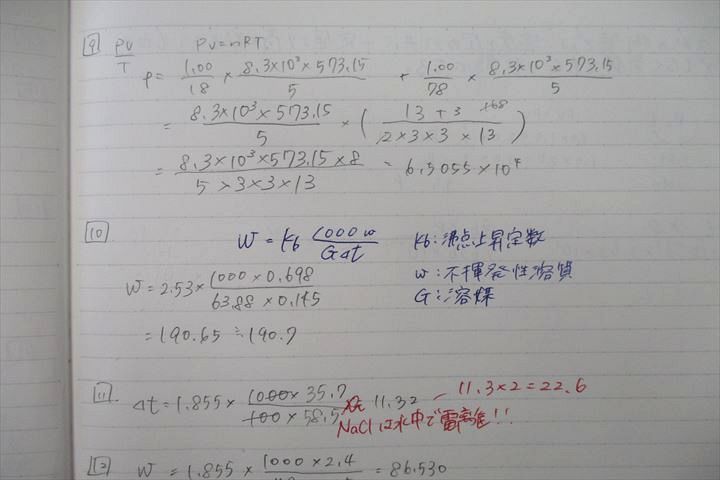 9 PV/T PV=nRT
P= 1.00/18 × 8.3×10³×573.15/5 + 1.00/78 × 8.3×10³×573.15/5
= 8.3×10³×573.15/5 × (13+3/2×3×3×13)
= 8.3×10³×573.15×8/5×3×3×13 = 6.5055×10⁴
10 W = Kb 1000w/GΔt Kb:沸点上昇定数
w:不揮発性溶質
G:溶媒
W=2.53× 1000×0.698/63.88×0.145
=190.65≒190.7
11 Δt=1.855× 1000×35.7/100×58.5 11.32 11.3×2=22.6
NaClは水中で電離!!
12 W=1.855× 1000×2.4 =86.530